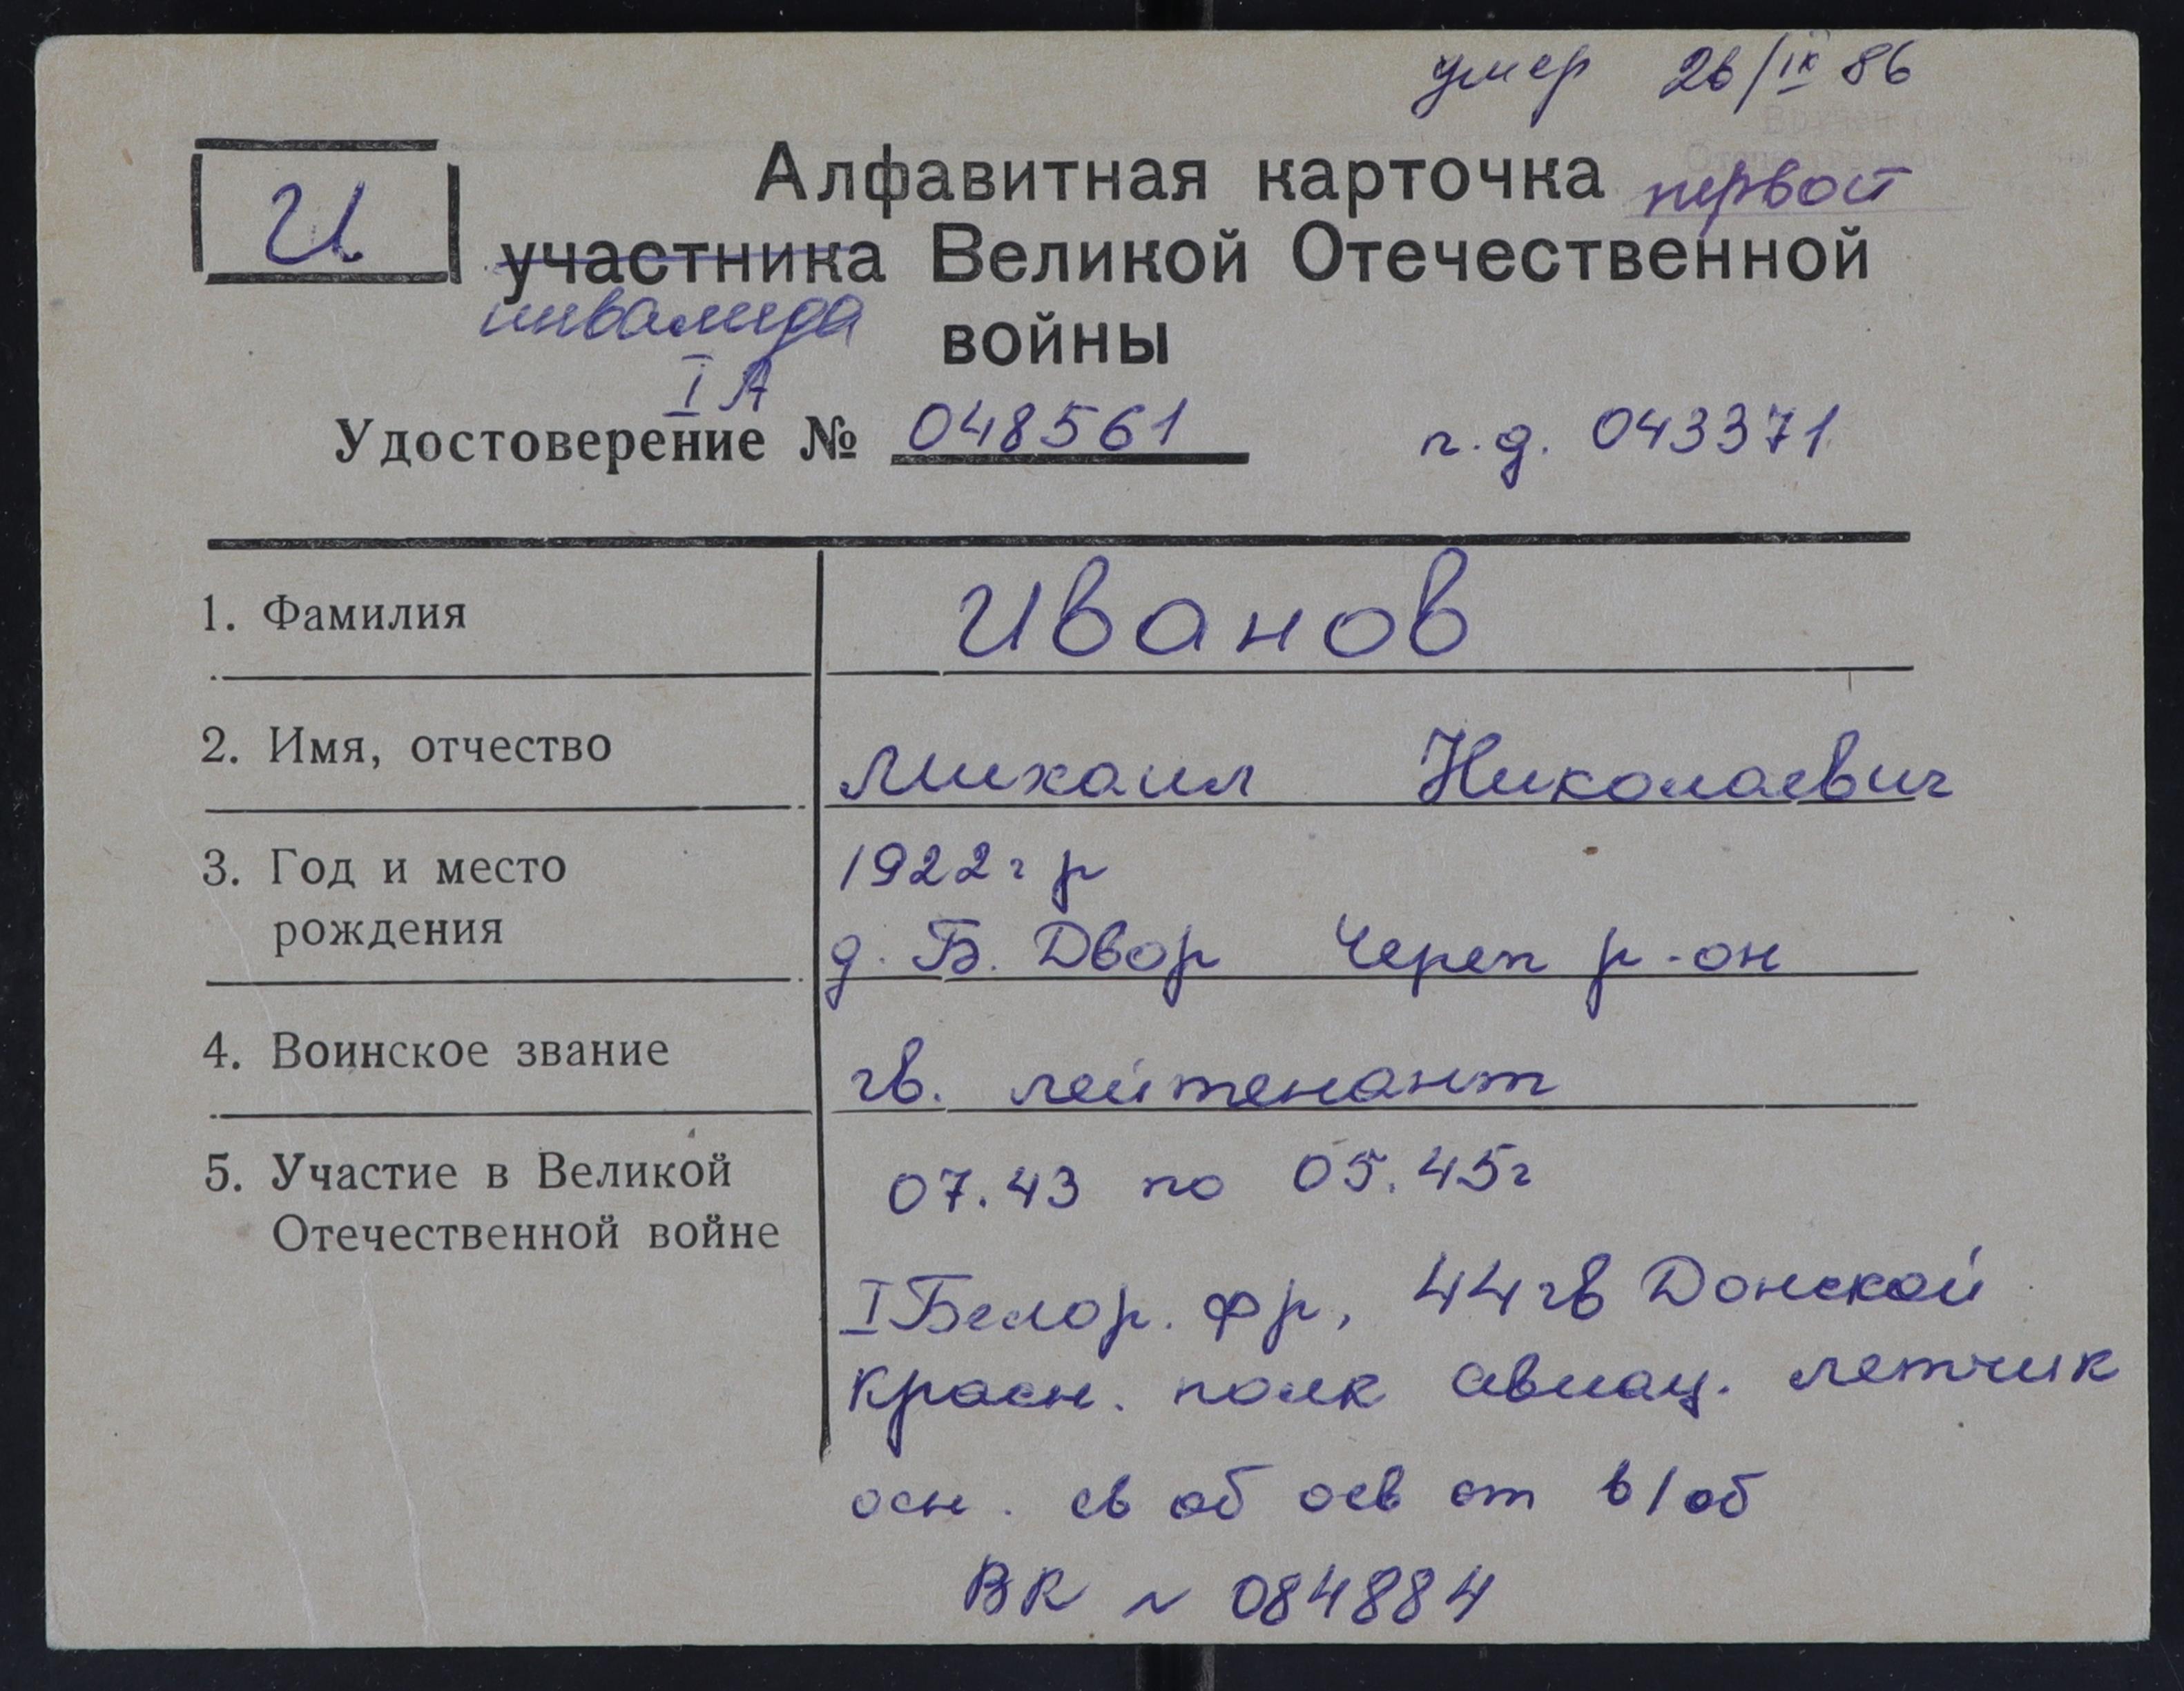 умер 26/IX 86
И.
Алфавитная карточка первой
участника Великой Отечественной
инвалида
войны
I А
Удостоверение № 048561 п.д. 043371
1. Фамилия Иванов
2. Имя, отчество Михаил Николаевич
3. Год и место 1922 г р
рождения д. Б. Двор Череп р-он
4. Воинское звание гв. лейтенант
5. Участие в Великой 07.43 по 05.45г
Отечественной войне
I Белор. фр, 44 гв Донской
красн. полк авиац. летчик
осн. св об осв от в/об
ВК № 084884